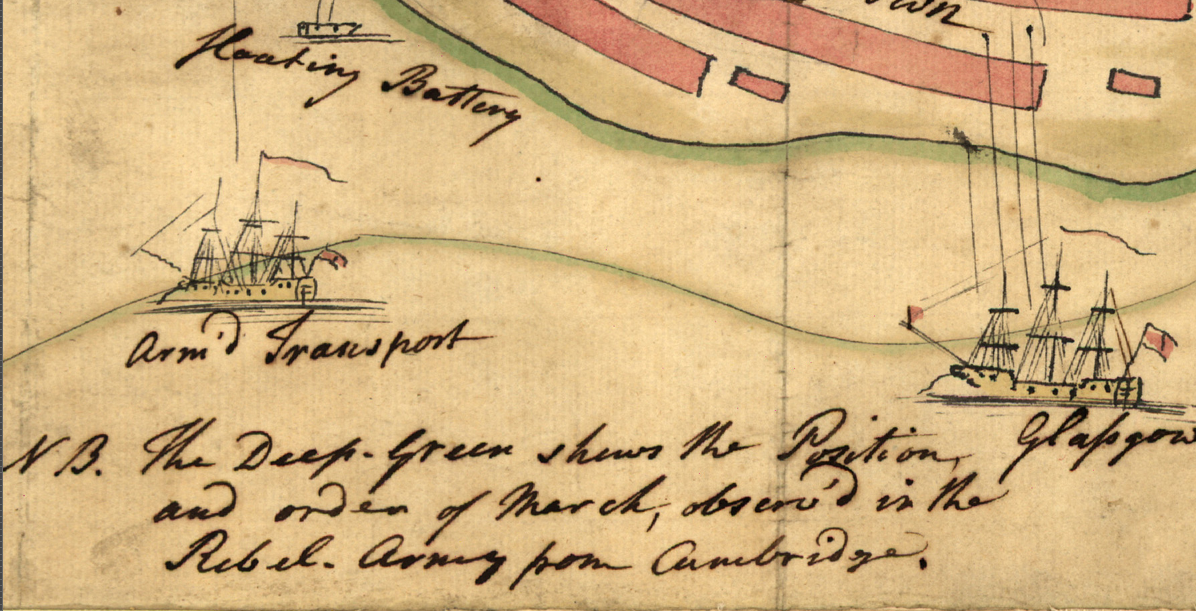 Floating Battery
Arm'd Transport
Glasgow
N B. The Deep-Green shews the Position,
and order of March, observ'd in the
Rebel-Army from Cambridge.